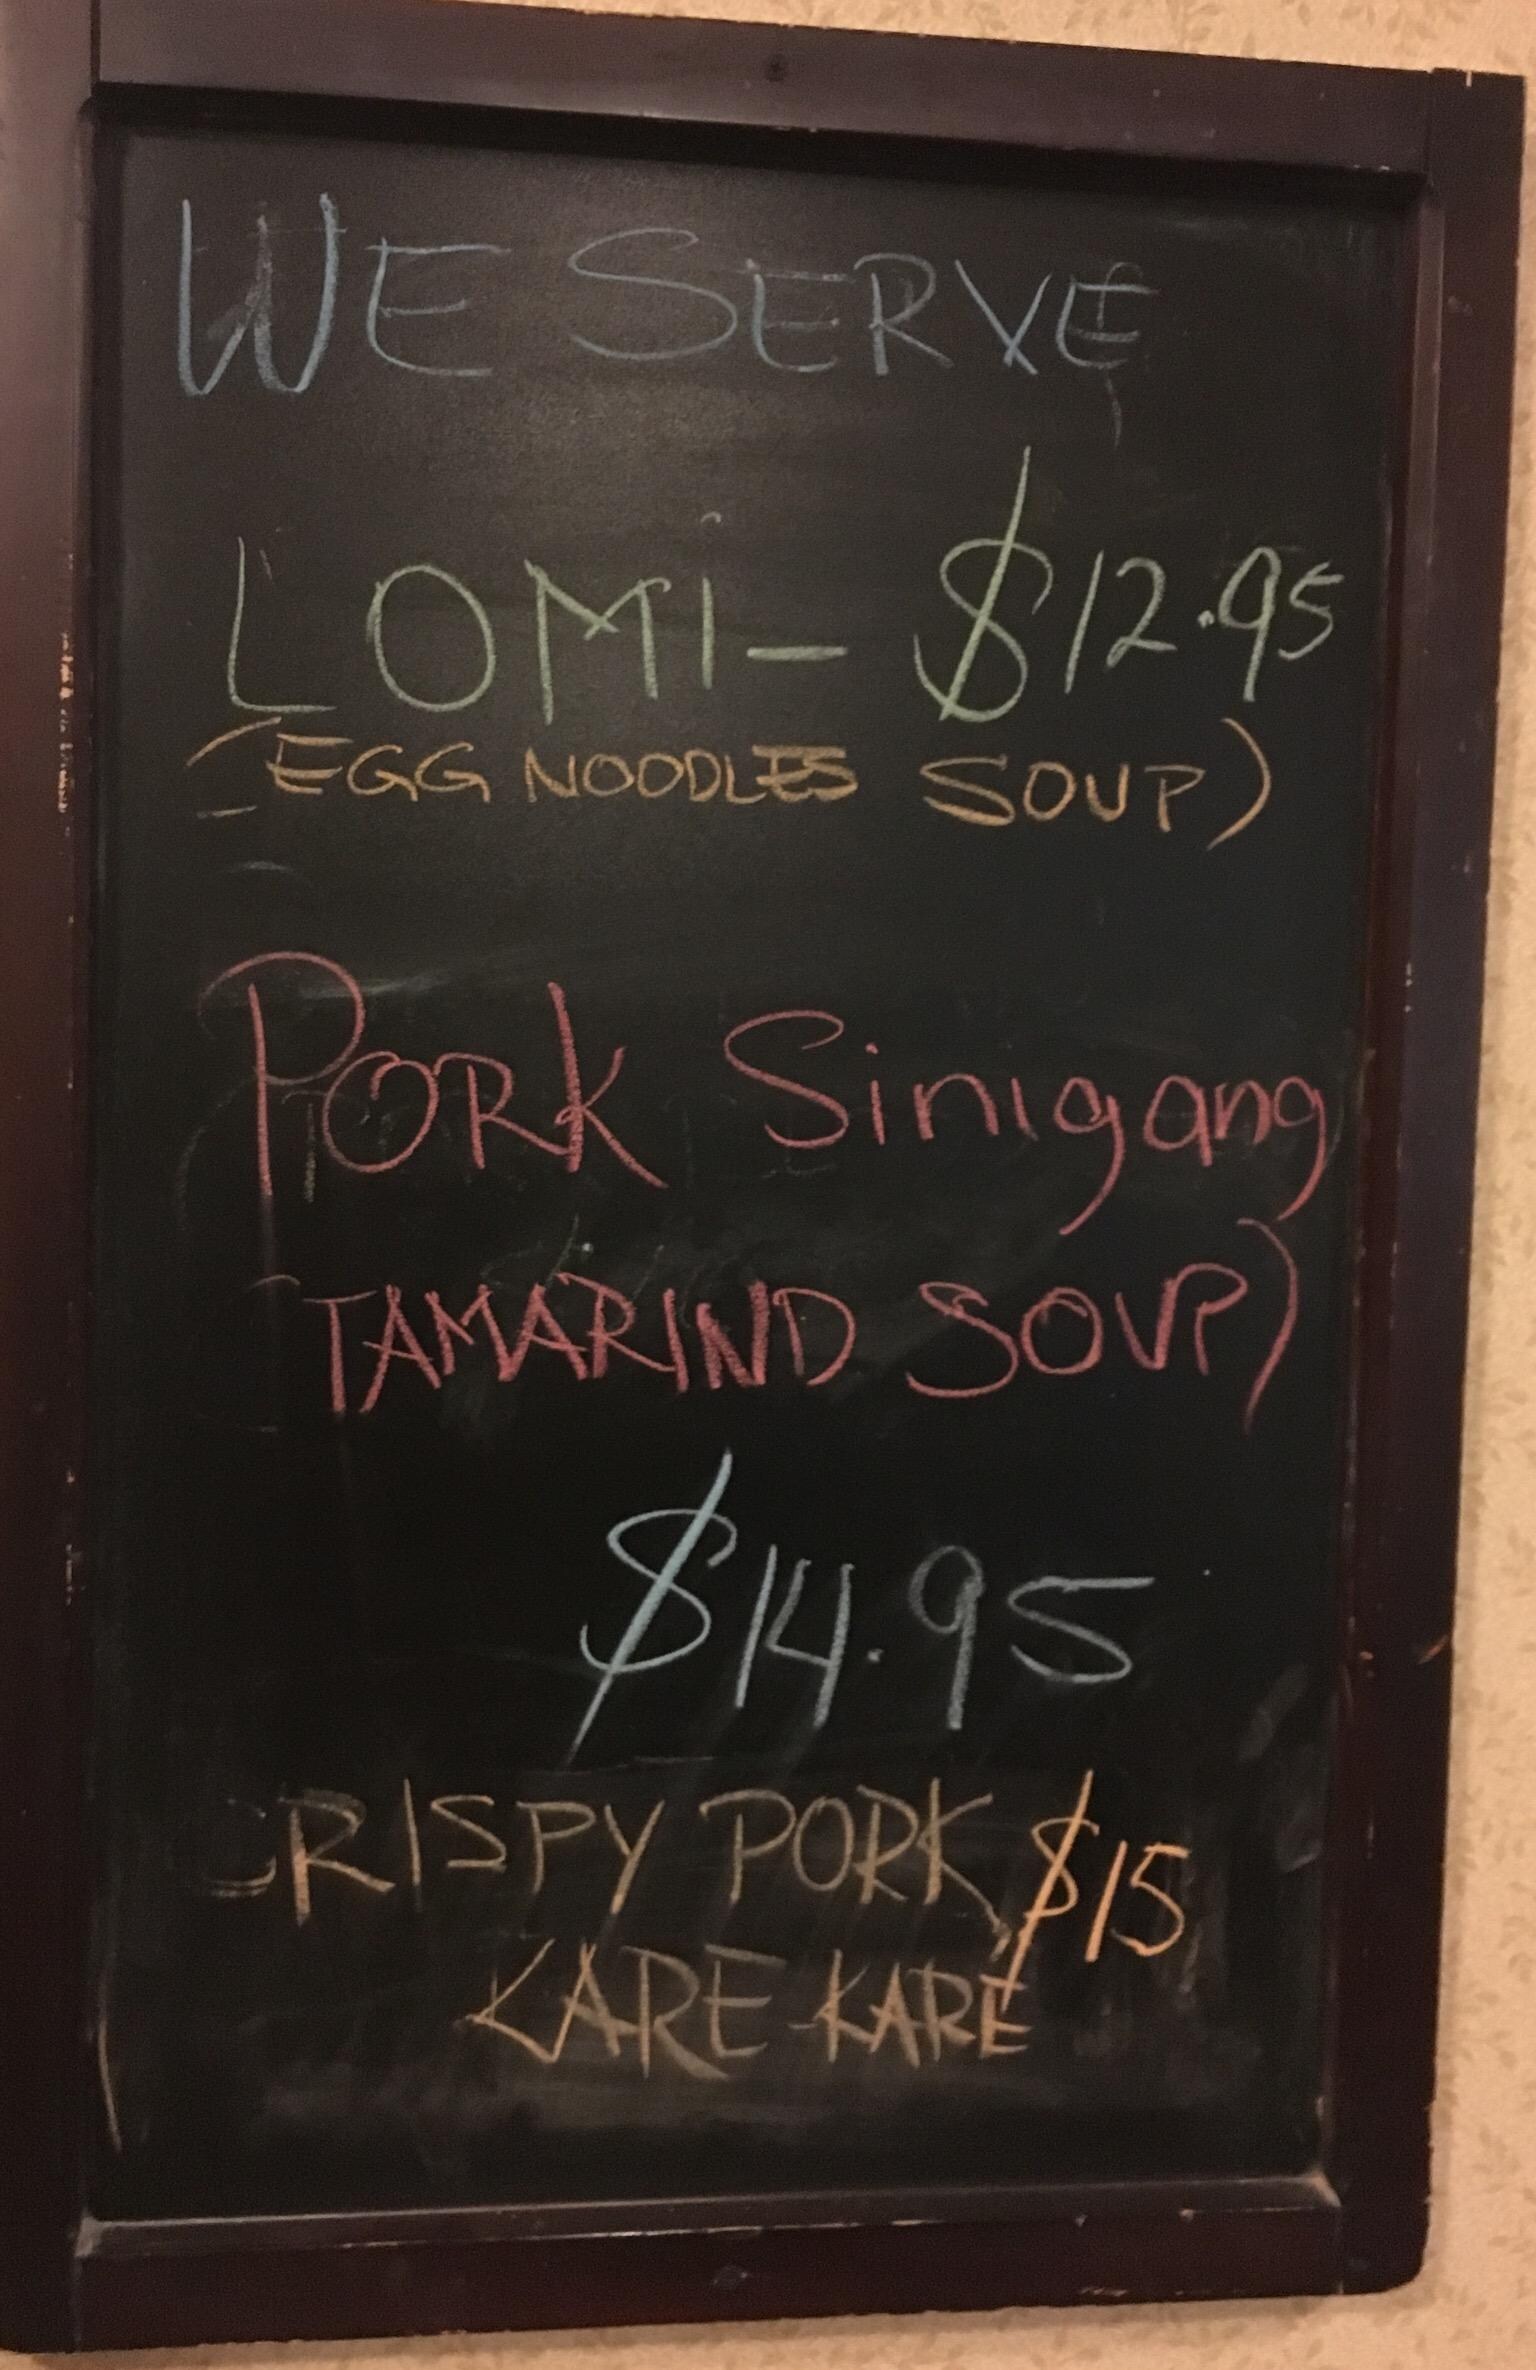 WE SERVE
LOMI - $12.95
(EGG NOODLES SOUP)
PORK Sinigang
(TAMARIND SOUP)
$14.95
CRISPY PORK $15
KARE-KARE